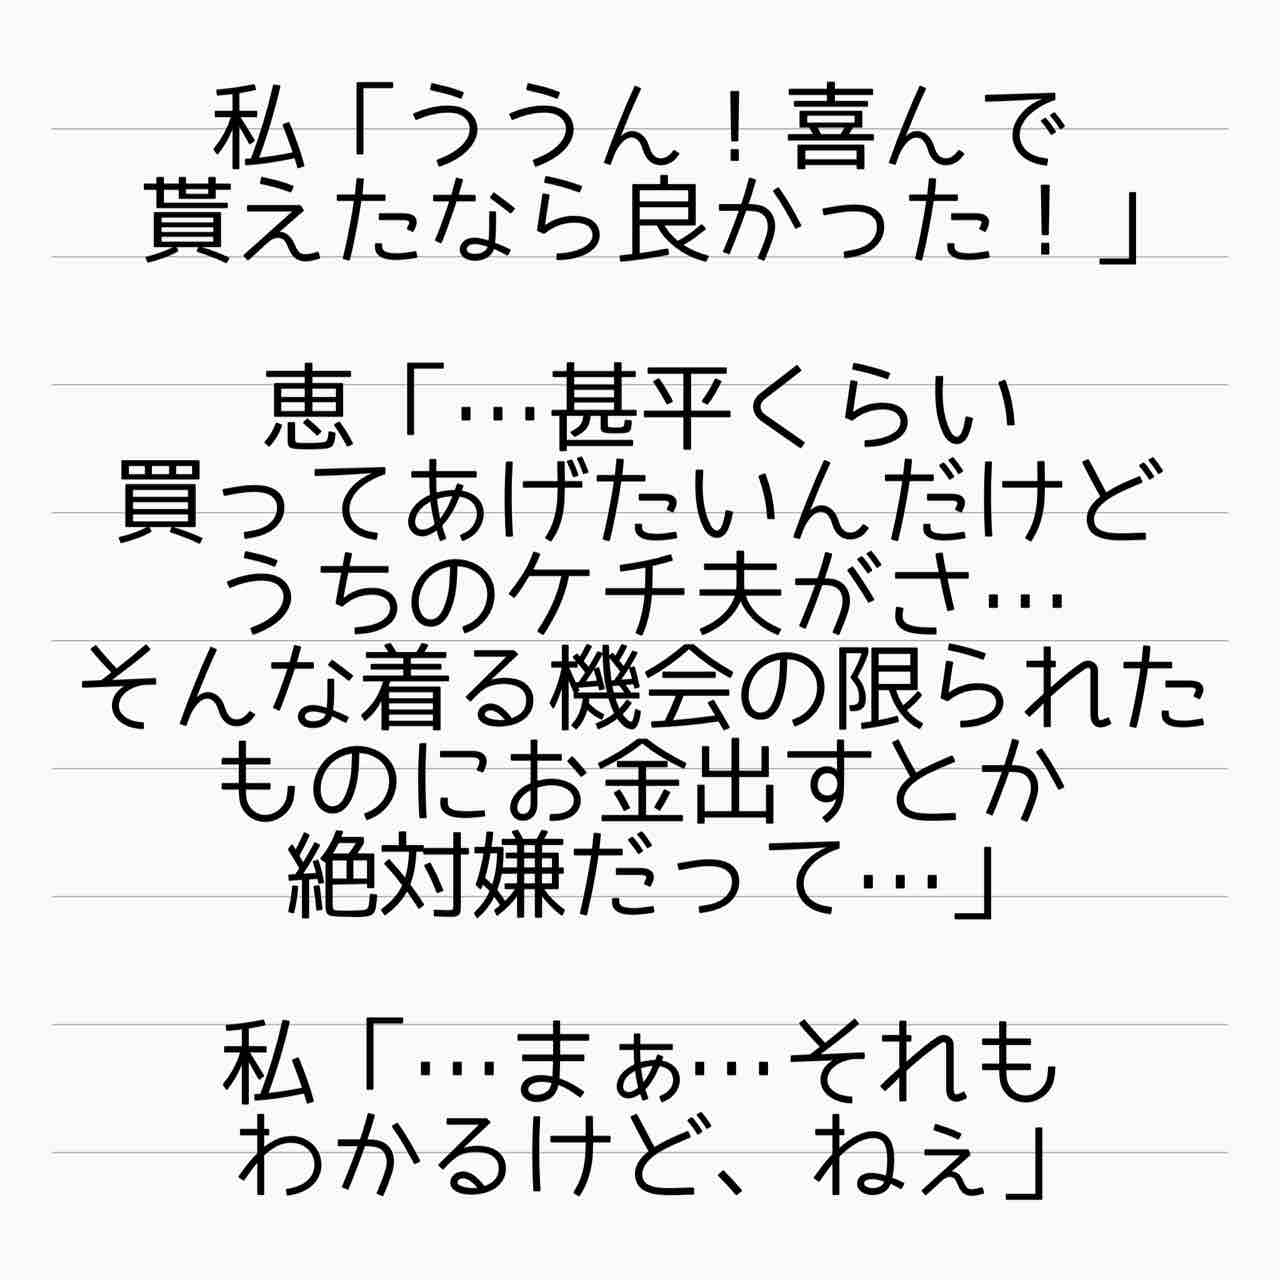 私「ううん！喜んで
貰えたなら良かった！」
恵「…甚平くらい
買ってあげたいんだけど
うちのケチ夫がさ…
そんな着る機会の限られた
ものにお金出すとか
絶対嫌だって…」
私「…まぁ…それも
わかるけど、ねぇ」